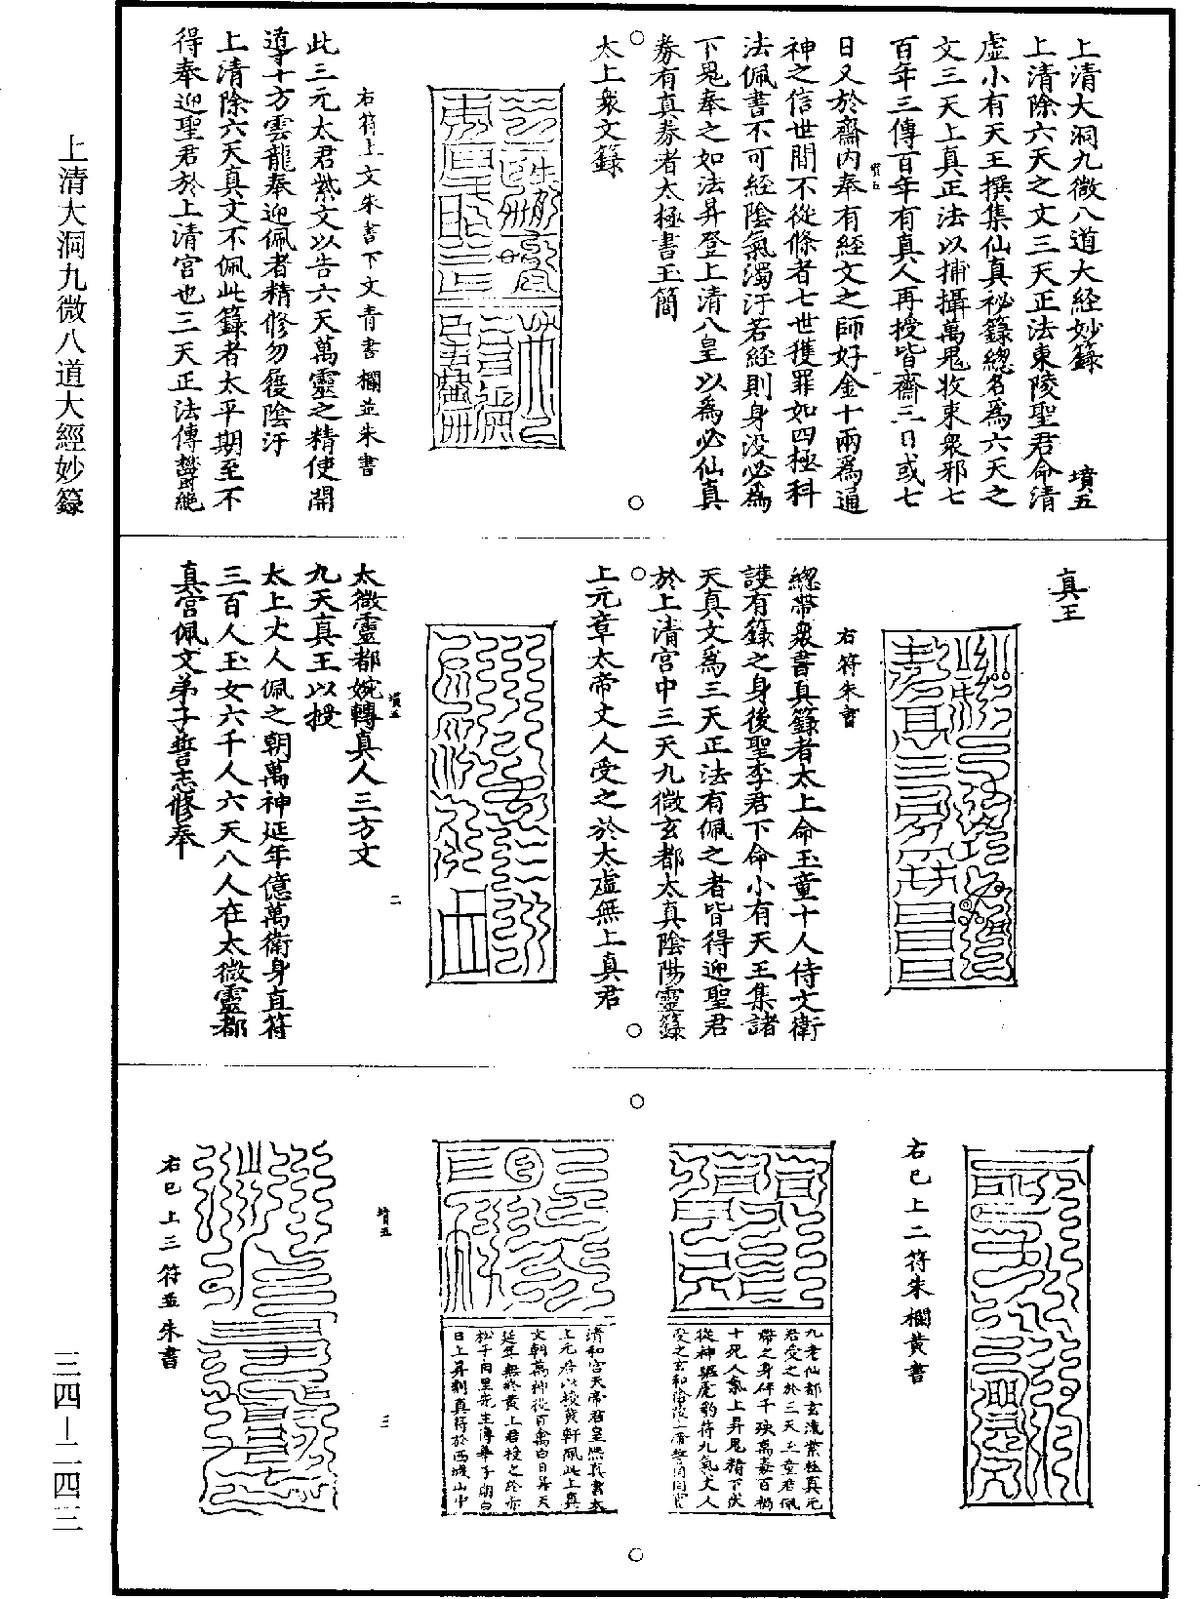 上清大洞九微八道大經妙籙　墳五
上清除六天之文三天正法東陵聖君命清
虛小有天王撰集仙真祕籙總名為六天之
文三天上真正法以捕攝萬鬼收束眾邪七
百年三傳百年有真人再授皆齋三日或七
日又於齋內奉有經文之師好金十兩為通
墳五
一
神之信世間不從條者七世獲罪如四極科
法佩書不可經陰氣濁汙若經則身沒必為
下鬼奉之如法昇登上清八皇以為必仙真
券有真券者太極書玉簡
太上眾文籙
右符上文朱書下文青書欄並朱書
此三元太君紫文以告六天萬靈之精使開
導十方雲龍奉迎佩者精修勿履陰汙
上清除六天真文不佩此籙者太平期至不
得奉迎聖君於上清宮也三天正法傳鬱絕
真王
右符朱書
總帶眾書真籙者太上命玉童十人侍文衛
護有籙之身後聖李君下命小有天王集諸
天真文為三天正法有佩之者皆得迎聖君
於上清宮中三天九微玄都太真陰陽靈籙
上元章太帝丈人受之於太虛無上真君
墳五
二
太微靈都婉轉真人三方文
九天真王以授
太上大人佩之朝萬神延年億萬衛身直符
三百人玉女六千人六天八人在太微靈都
真宮佩文弟子誓志修奉
右已上二符朱欄黃書
九老仙都玄流紫極真元
君受之於三天玉童君佩
帶之身伴千殃萬毒百禍
十死人氣上昇鬼精下伏
從神驅虎豹符九氣丈人
清和宮天帝君
上元君以授黃軒佩此上真
文朝萬神從百禽白日昇天
松子角里先生
日上昇刻真符於西城山中
墳五
三
右已上三符並朱書
上清大洞九微八道大經妙籙
三四—二四三